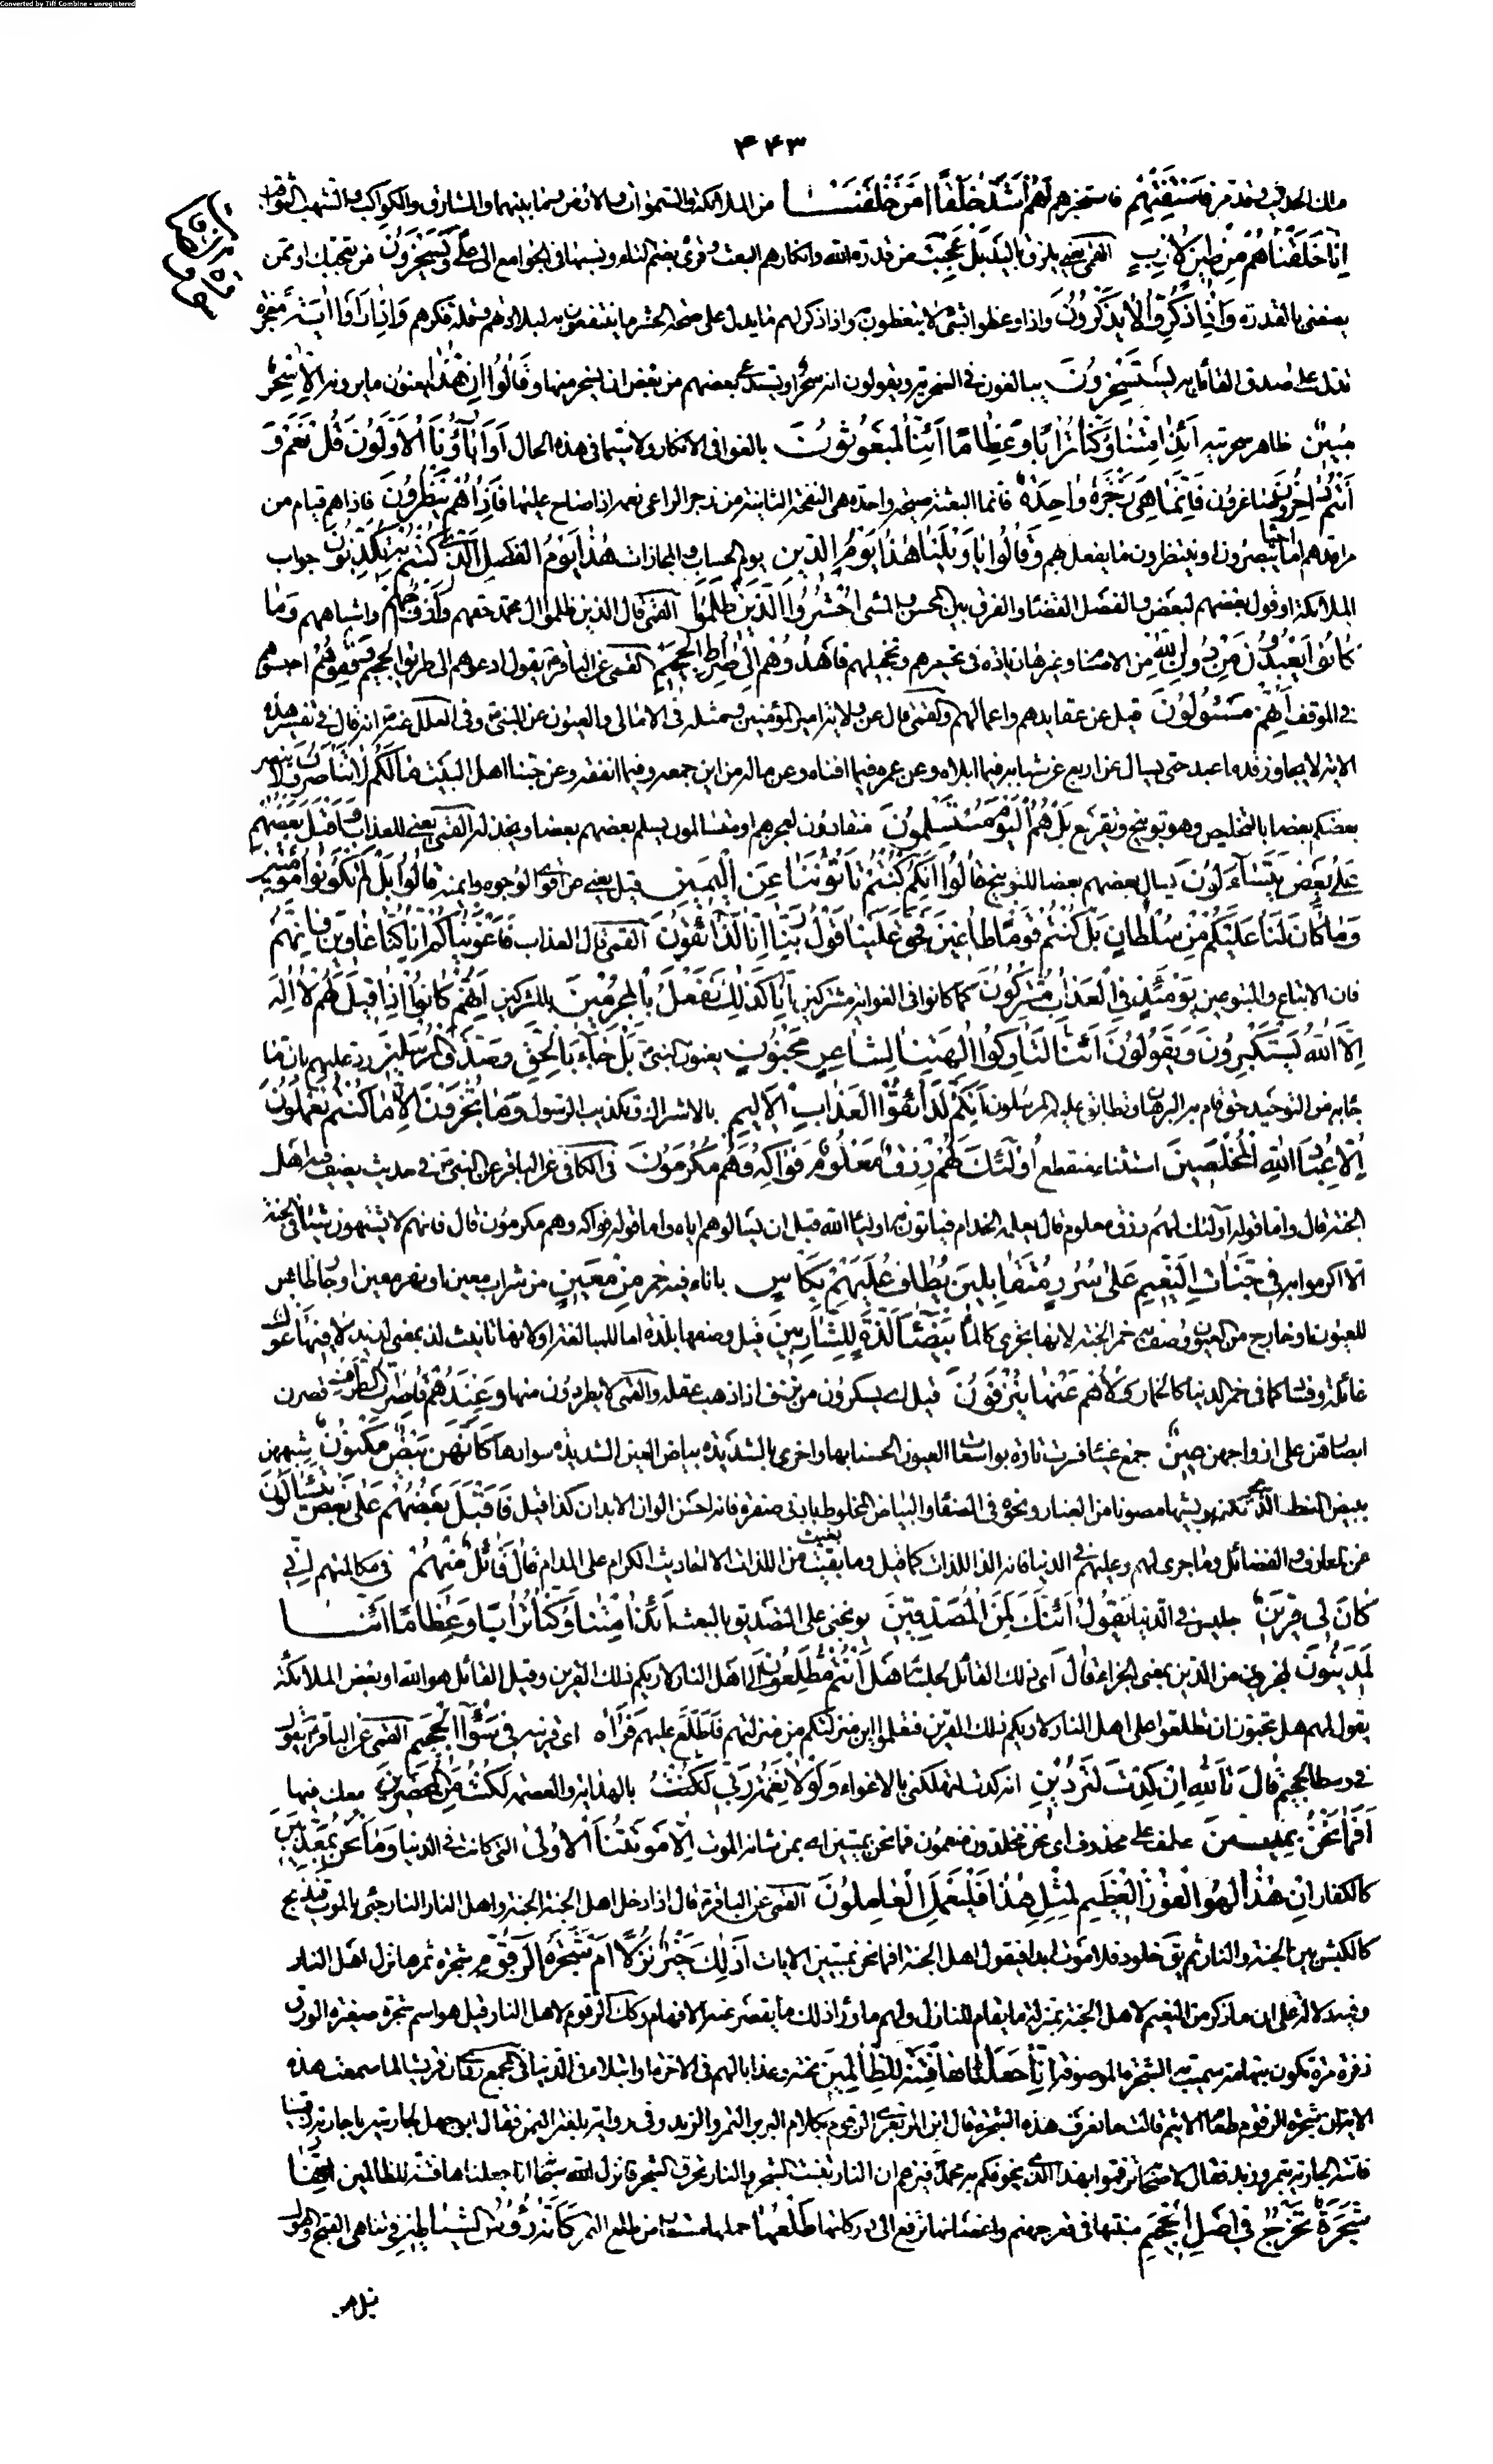 Converted by Tiff Combine - unregistered
۴۴۳
فَاسْتَفْتِهِمْ فاستخبرهم أَهُمْ أَشَدُّ خَلْقًا أَمْ مَنْ خَلَقْنَا من الملائكة والسموات والارض وما بينهما والمشارق والكواكب والشهب الثواقب
إِنَّا خَلَقْنَاهُمْ مِنْ طِينٍ لَازِبٍ القمى يعنى يلزق باليد بَلْ عَجِبْتَ من قدرة الله وانكارهم البعث وقرئ بضم التاء ونسبها فى الجوامع الى على وَيَسْخَرُونَ من تعجبك او ممن
يصفنى بالقدرة وَإِذَا ذُكِّرُوا لَا يَذْكُرُونَ واذا وعظوا بشئ لا يتعظون او اذا ذكر لهم ما يدل على صحة الحشر ما ينتفعون به لبلادتهم وقلة فكرهم وَإِذَا رَأَوْا آيَةً معجزة
تدل على صدق القائل به يَسْتَسْخِرُونَ يبالغون فى السخرية ويقولون انه سحر او يستدعى بعضهم من بعض ان يسخر منها وَقَالُوا إِنْ هَذَا يعنون ما يرونه إِلَّا سِحْرٌ
مُبِينٌ ظاهر سحريته أَئِذَا مِتْنَا وَكُنَّا تُرَابًا وَعِظَامًا أَئِنَّا لَمَبْعُوثُونَ بالغوا فى الانكار ولا سيما فى هذه الحال أَوَآبَاؤُنَا الْأَوَّلُونَ قُلْ نَعَمْ وَ
أَنْتُمْ دَاخِرُونَ صاغرون فَإِنَّمَا هِيَ زَجْرَةٌ وَاحِدَةٌ فانما البعثة صيحة واحدة هى النفخة الثانية من زجر الراعى غنمه اذا صاح عليها فَإِذَا هُمْ يَنْظُرُونَ فاذا هم قيام من
مراقدهم احياء يبصرون او ينتظرون ما يفعل بهم وَقَالُوا يَا وَيْلَنَا هَذَا يَوْمُ الدِّينِ يوم الحساب والمجازات هَذَا يَوْمُ الْفَصْلِ الَّذِي كُنْتُمْ بِهِ تُكَذِّبُونَ جواب
الملائكة او قول بعضهم لبعض والفصل القضاء والفرق بين المحسن والمسئ احْشُرُوا الَّذِينَ ظَلَمُوا القمى قال الذين ظلموا ال محمد حقهم وَأَزْوَاجَهُمْ واشباههم وَمَا
كَانُوا يَعْبُدُونَ مِنْ دُونِ اللَّهِ من الاصنام وغيرها زيادة فى تحسيرهم وتخجيلهم فَاهْدُوهُمْ إِلَى صِرَاطِ الْجَحِيمِ القمى عن الباقر ع يقول ادعوهم الى طريق الجحيم وَقِفُوهُمْ احبسوهم
فى الموقف إِنَّهُمْ مَسْئُولُونَ قيل عن عقايدهم واعمالهم والقمى قال عن ولاية امير المؤمنين ومثله فى الامالى والعيون عن النبى وفى العلل عنه ع انه قال فى تفسير هذه
الاية لا يجاوز قدما عبد حتى يسال عن اربع عن شبابه فيما ابلاه وعن عمره فيما افناه وعن ماله من اين جمعه وفيما انفقه وعن حبنا اهل البيت مَا لَكُمْ لَا تَنَاصَرُونَ لا ينصر
بعضكم بعضا بالتخليص وهو توبيخ وتقريع بَلْ هُمُ الْيَوْمَ مُسْتَسْلِمُونَ منقادون لعجزهم او متسالمون يسلم بعضهم بعضا ويخذله القمى يعنى للعذاب وَأَقْبَلَ بَعْضُهُمْ
عَلَى بَعْضٍ يَتَسَاءَلُونَ يسال بعضهم بعضا للتوبيخ قَالُوا إِنَّكُمْ كُنْتُمْ تَأْتُونَنَا عَنِ الْيَمِينِ قيل يعنى من اقوى الوجوه وايمنه قَالُوا بَلْ لَمْ تَكُونُوا مُؤْمِنِينَ
وَمَا كَانَ لَنَا عَلَيْكُمْ مِنْ سُلْطَانٍ بَلْ كُنْتُمْ قَوْمًا طَاغِينَ فَحَقَّ عَلَيْنَا قَوْلُ رَبِّنَا إِنَّا لَذَائِقُونَ القمى قال العذاب فَأَغْوَيْنَاكُمْ إِنَّا كُنَّا غَاوِينَ فَإِنَّهُمْ
فان الاتباع والمتبوعين يَوْمَئِذٍ فِي الْعَذَابِ مُشْتَرِكُونَ كما كانوا فى الغواية مشتركين إِنَّا كَذَلِكَ نَفْعَلُ بِالْمُجْرِمِينَ بالمشركين إِنَّهُمْ كَانُوا إِذَا قِيلَ لَهُمْ لَا إِلَهَ
إِلَّا اللَّهُ يَسْتَكْبِرُونَ وَيَقُولُونَ أَئِنَّا لَتَارِكُوا آلِهَتِنَا لِشَاعِرٍ مَجْنُونٍ يعنون النبى بَلْ جَاءَ بِالْحَقِّ وَصَدَّقَ الْمُرْسَلِينَ رد عليهم بان ما
جاء به من التوحيد حق قام به البرهان وتطابق عليه المرسلون إِنَّكُمْ لَذَائِقُوا الْعَذَابِ الْأَلِيمِ بالاشراك وتكذيب الرسول وَمَا تُجْزَوْنَ إِلَّا مَا كُنْتُمْ تَعْمَلُونَ
إِلَّا عِبَادَ اللَّهِ الْمُخْلَصِينَ استثناء منقطع أُولَئِكَ لَهُمْ رِزْقٌ مَعْلُومٌ فَوَاكِهُ وَهُمْ مُكْرَمُونَ فى الكافى عن الباقر عن النبى فى حديث يصف فيه اهل
الجنة قال واما قوله اولئك لهم رزق معلوم قال يعلمه الخدام فياتون به اولياء الله قبل ان يسالوهم اياه واما قوله فواكه وهم مكرمون قال فانهم لا يشتهون شيئا فى الجنة
الا اكرموا به فِي جَنَّاتِ النَّعِيمِ عَلَى سُرُرٍ مُتَقَابِلِينَ يُطَافُ عَلَيْهِمْ بِكَأْسٍ باناء فيه خمر مِنْ مَعِينٍ من شراب معين او نهر معين اى جار ظاهر
للعيون او خارج من العيون وصف به خمر الجنة لانها تجرى كالماء بَيْضَاءَ لَذَّةٍ لِلشَّارِبِينَ قيل وصفها بلذة اما للمبالغة او لانها تانيث لذ بمعنى لذيذ لَا فِيهَا غَوْلٌ
غائلة وفساد كما فى خمر الدنيا كالخمار وَلَا هُمْ عَنْهَا يُنْزَفُونَ قيل اى يسكرون من نزف اذا ذهب عقله والقمى لا يطردون منها وَعِنْدَهُمْ قَاصِرَاتُ الطَّرْفِ قصرن
ابصارهن على ازواجهن عِينٌ جمع عيناء فسرت تارة بواسعات العيون لحسنها واخرى بالشديدة بياض العين الشديدة سوادها كَأَنَّهُنَّ بَيْضٌ مَكْنُونٌ شبههن
ببيض النعام الذى تكنه بريشها مصونا من الغبار ونحوه فى الصفاء والبياض المخلوط بادنى صفرة فانه احسن الوان الابدان كذا قيل فَأَقْبَلَ بَعْضُهُمْ عَلَى بَعْضٍ يَتَسَاءَلُونَ
عن المعارف والفضائل وما جرى لهم وعليهم فى الدنيا فانه الذ اللذات كما قيل وما بقيت من اللذات الا احاديث الكرام على المدام قَالَ قَائِلٌ مِنْهُمْ فى مكالمتهم إِنِّي
كَانَ لِي قَرِينٌ جليس فى الدنيا يَقُولُ أَئِنَّكَ لَمِنَ الْمُصَدِّقِينَ يوبخنى على التصديق بالبعث أَئِذَا مِتْنَا وَكُنَّا تُرَابًا وَعِظَامًا أَئِنَّا
لَمَدِينُونَ لمجزيون من الدين بمعنى الجزاء قَالَ اى ذلك القائل لجلسائه هَلْ أَنْتُمْ مُطَّلِعُونَ الى اهل النار لاريكم ذلك القرين وقيل القائل هو الله او بعض الملائكة
يقول لهم هل تحبون ان تطلعوا على اهل النار لاريكم ذلك القرين فتعلموا اين منزلتكم من منزلتهم فَاطَّلَعَ عليهم فَرَآهُ اى قرينه فِي سَوَاءِ الْجَحِيمِ القمى عن الباقر ع يقول
فى وسط الجحيم قَالَ تَاللَّهِ إِنْ كِدْتَ لَتُرْدِينِ انه كدت لتهلكنى بالاغواء وَلَوْلَا نِعْمَةُ رَبِّي لَكُنْتُ بالهداية والعصمة لَكُنْتُ مِنَ الْمُحْضَرِينَ معك فيها
أَفَمَا نَحْنُ بِمَيِّتِينَ عطف على محذوف اى نحن مخلدون منعمون فما نحن بميتين اى بمن شانه الموت إِلَّا مَوْتَتَنَا الْأُولَى التى كانت فى الدنيا وَمَا نَحْنُ بِمُعَذَّبِينَ
كالكفار إِنَّ هَذَا لَهُوَ الْفَوْزُ الْعَظِيمُ لِمِثْلِ هَذَا فَلْيَعْمَلِ الْعَامِلُونَ القمى عن الباقر ع قال اذا دخل اهل الجنة الجنة واهل النار النار جئ بالموت فيذبح
كالكبش بين الجنة والنار ثم يق خلود فلا موت ابدا فيقول اهل الجنة افما نحن بميتين الايات أَذَلِكَ خَيْرٌ نُزُلًا أَمْ شَجَرَةُ الزَّقُّومِ شجرة ثمرها نزل اهل النار
وفيه دلالة على ان ما ذكر من النعيم لاهل الجنة بمنزلة ما يقام للنازل ولهم ما وراء ذلك ما يقصر عنه الافهام وكذلك الزقوم لاهل النار قيل هو اسم شجرة صغيرة الورق
ذفرة مرة تكون بتهامة سميت به الشجرة الموصوفة إِنَّا جَعَلْنَاهَا فِتْنَةً لِلظَّالِمِينَ محنة وعذابا لهم فى الاخرة وابتلاء فى الدنيا فى المجمع روى ان قريشا لما سمعت هذه
الاية ان شجرة الزقوم طعام الاثيم قالت ما نعرف هذه الشجرة قال ابن الزبعرى الزقوم بكلام البربر التمر والزبد وفى رواية بلغة اليمن فقال ابو جهل لجاريته يا جارية زقمينا
فاتته الجارية بتمر وزبد فقال لاصحابه تزقموا بهذا الذى يخوفكم به محمد فيزعم ان النار تنبت الشجر والنار تحرق الشجر فانزل الله سبحانه انا جعلناها فتنة للظالمين إِنَّهَا
شَجَرَةٌ تَخْرُجُ فِي أَصْلِ الْجَحِيمِ منبتها فى قعر جهنم واغصانها ترفع الى دركاتها طَلْعُهَا حملها مستعار من طلع التمر كَأَنَّهُ رُءُوسُ الشَّيَاطِينِ فى تناهى القبح والهول